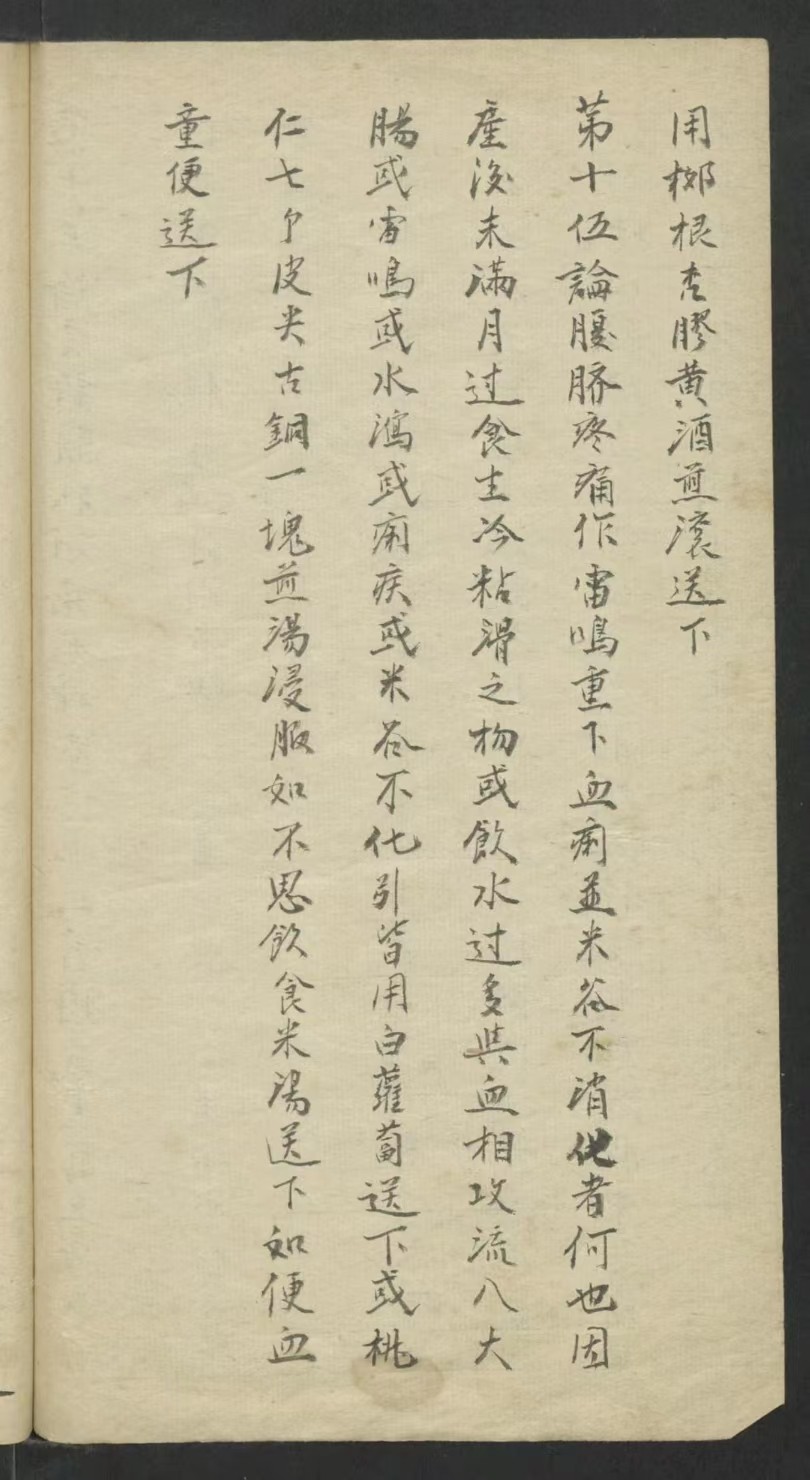 用榔根杏膠黄酒煎滚送下
第十伍論腹臍疼痛作雷鳴重下血痢並米谷不消化者何也因
産後未滿月过食生冷粘滑之物或飲水过多與血相攻流入大
腸或雷鳴或水瀉或痢疾或米谷不化引皆用白蘿蔔送下或桃
仁七个皮尖古銅一塊煎湯浸服如不思飲食米湯送下如便血
童便送下